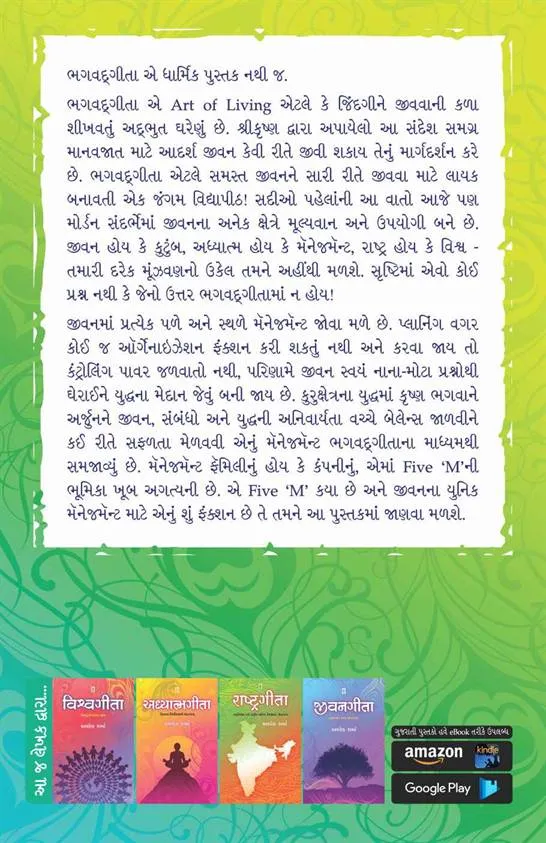 ભગવદ્ગીતા એ ધાર્મિક પુસ્તક નથી જ.
ભગવદ્ગીતા એ Art of Living એટલે કે જિંદગીને જીવવાની કળા
શીખવતું અદ્ભુત ઘરેણું છે. શ્રીકૃષ્ણ દ્વારા અપાયેલો આ સંદેશ સમગ્ર
માનવજાત માટે આદર્શ જીવન કેવી રીતે જીવી શકાય તેનું માર્ગદર્શન કરે
છે. ભગવદ્ગીતા એટલે સમસ્ત જીવનને સારી રીતે જીવવા માટે લાયક
બનાવતી એક જંગમ વિદ્યાપીઠ! સદીઓ પહેલાંની આ વાતો આજે પણ
મોર્ડન સંદર્ભમાં જીવનના અનેક ક્ષેત્રે મૂલ્યવાન અને ઉપયોગી બને છે.
જીવન હોય કે કુટુંબ, અધ્યાત્મ હોય કે મૅનેજમૅન્ટ, રાષ્ટ્ર હોય કે વિશ્વ -
તમારી દરેક મૂંઝવણનો ઉકેલ તમને અહીંથી મળશે. સૃષ્ટિમાં એવો કોઈ
પ્રશ્ન નથી કે જેનો ઉત્તર ભગવદ્ગીતામાં ન હોય!
જીવનમાં પ્રત્યેક પળે અને સ્થળે મૅનેજમૅન્ટ જોવા મળે છે. પ્લાનિંગ વગર
કોઈ જ ઑર્ગેનાઇઝેશન ફંક્શન કરી શકતું નથી અને કરવા જાય તો
કંટ્રોલિંગ પાવર જળવાતો નથી, પરિણામે જીવન સ્વયં નાના-મોટા પ્રશ્નોથી
ઘેરાઈને યુદ્ધના મેદાન જેવું બની જાય છે. કુરુક્ષેત્રના યુદ્ધમાં કૃષ્ણ ભગવાને
અર્જુનને જીવન, સંબંધો અને યુદ્ધની અનિવાર્યતા વચ્ચે બેલેન્સ જાળવીને
કઈ રીતે સફળતા મેળવવી એનું મૅનેજમૅન્ટ ભગવદ્ગીતાના માધ્યમથી
સમજાવ્યું છે. મૅનેજમૅન્ટ ફૅમિલીનું હોય કે કંપનીનું, એમાં Five ‘M’ની
ભૂમિકા ખૂબ અગત્યની છે. એ Five ‘M’ કયા છે અને જીવનના યુનિક
મૅનેજમૅન્ટ માટે એનું શું ફંક્શન છે તે તમને આ પુસ્તકમાં જાણવા મળશે.
આ જ લેખક દ્વારા...
વિશ્વગીતા
અધ્યાત્મગીતા
રાષ્ટ્રગીતા
જીવનગીતા
ગુજરાતી પુસ્તકો હવે eBook તરીકે ઉપલબ્ધ
amazon kindle
Google Play